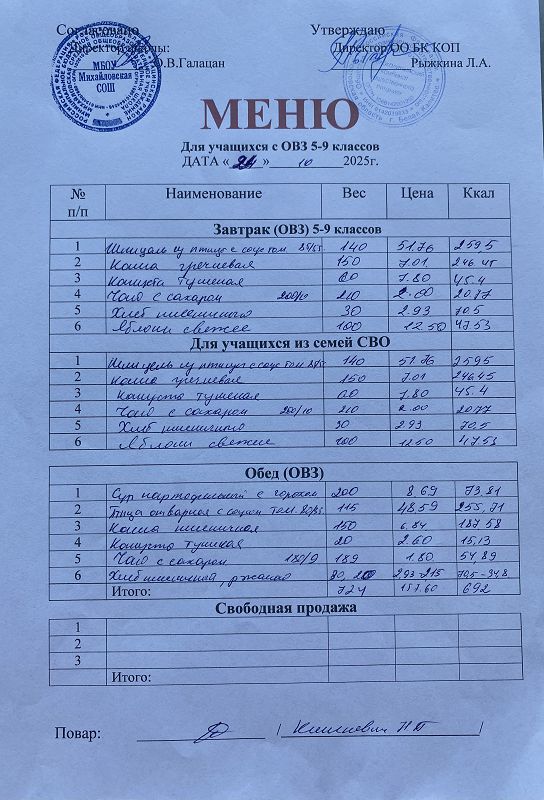 Согласовано Утверждаю
Директор школы: Директор ОО БК КОП
О.В.Галацан Рыжкина Л.А.
МБОУ
Михайловская
СОШ
МЕНЮ
Для учащихся с ОВЗ 5-9 классов
ДАТА « » 10 2025г.
№ п/п Наименование Вес Цена Ккал
Завтрак (ОВЗ) 5-9 классов
1 Шницель из птицы с соусом 140 51.76 259.5
2 Каша гречневая 150 7.01 246.45
3 Капуста тушеная 60 7.80 45.4
4 Чай с сахаром 200/10 210 2.00 20.77
5 Хлеб пшеничного 30 2.93 70.5
6 Яблоки свежее 100 12.50 47.53
Для учащихся из семей СВО
1 Шницель из птицы с соусом 140 51.76 259.5
2 Каша гречневая 150 7.01 246.45
3 Капуста тушеная 60 7.80 45.4
4 Чай с сахаром 200/10 210 2.00 20.77
5 Хлеб пшеничного 30 2.93 70.5
6 Яблоки свежее 100 12.50 47.53
Обед (ОВЗ)
1 Суп картофельный с горохом 200 8.69 73.81
2 Птица отварная с соусом том. 115 48.59 255,71
3 Каша пшеничная 150 6.84 187.58
4 Капуста тушеная 20 2.60 15,13
5 Чай с сахаром 180/9 189 1.80 54,89
6 Хлеб пшеничный ржаной 2,93-2,15 70,5-34,8
Итого: 724 692
Свободная продажа
1
2
3
Итого:
Повар: / /